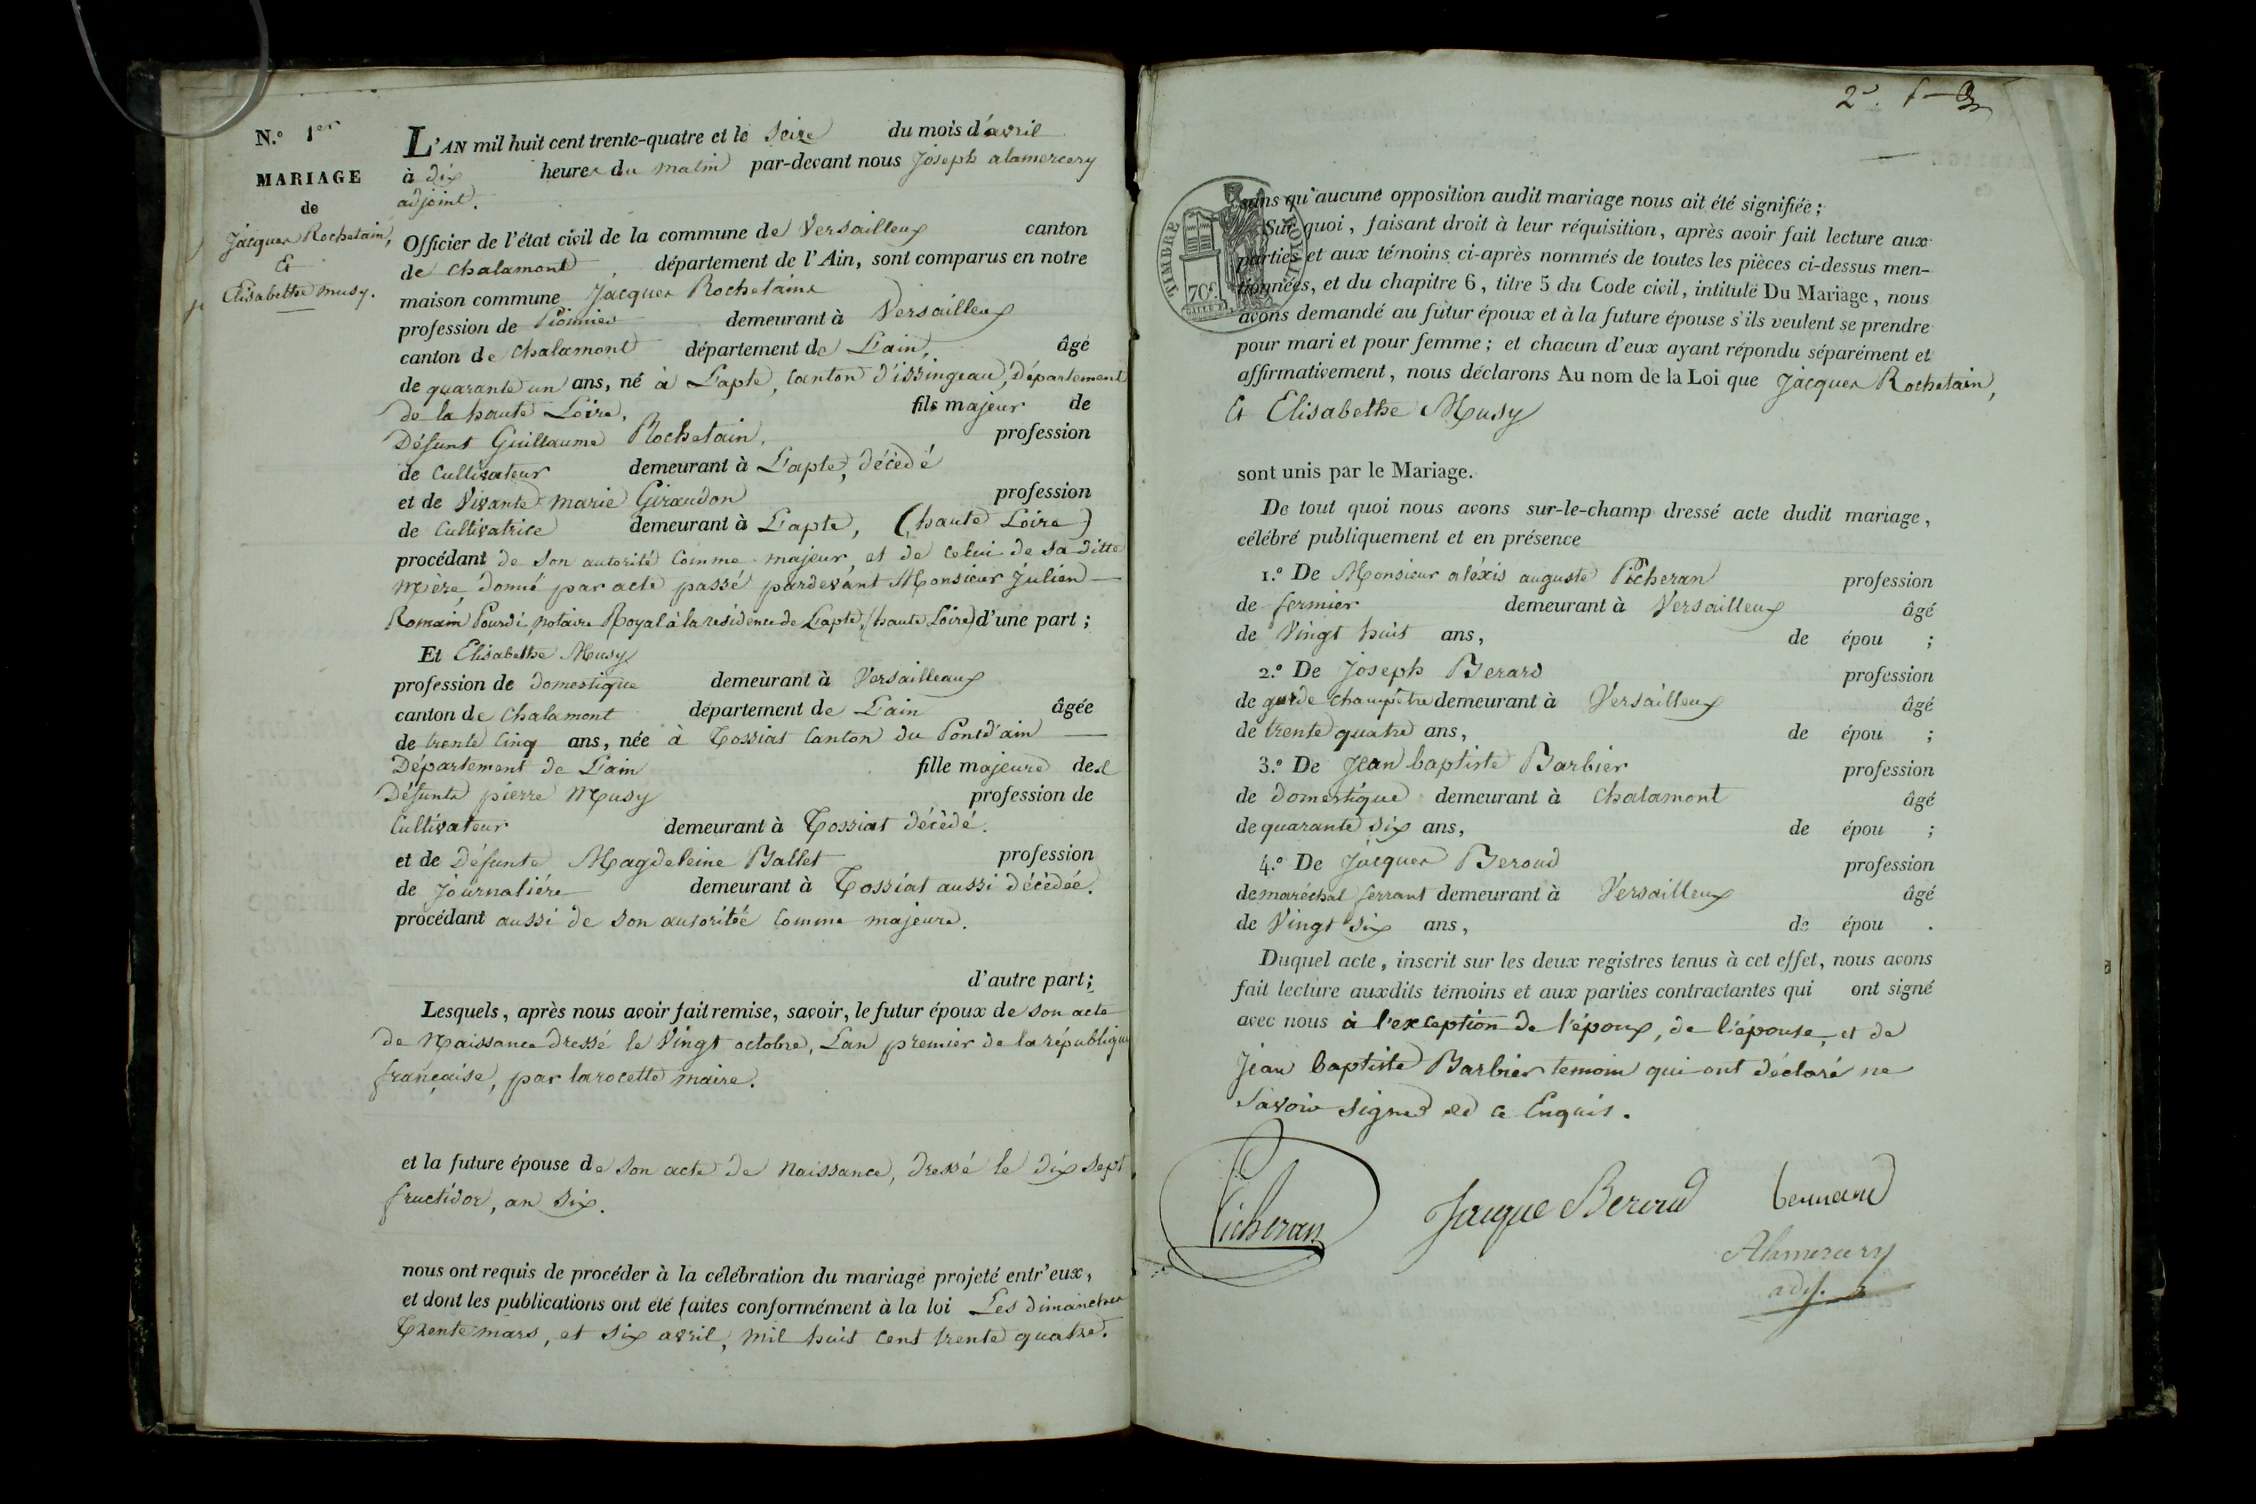 N.º 1er
MARIAGE
de
Jacques Rochetain,
Et
Elisabethe musy.
L'AN mil huit cent trente-quatre et le seize du mois d'avril
à dix heures du matin par-devant nous Joseph alamercery
adjoint.
Officier de l'état civil de la commune de Versailleux canton
de chalamont, département de l'Ain, sont comparus en notre
maison commune Jacques Rochetains
profession de Pionnier demeurant à Versailleux
canton de chalamont département de L'ain, âgé
de quarante un ans, né à Lapte, canton d'issingeau, Département
de la haute Loire, fils majeur de
Défunt Guillaume Rochetain, profession
de Cultivateur demeurant à Lapte, décèdé
et de Vivante marie Giraudon profession
de Cultivatrice demeurant à Lapte, (haute Loire)
procédant de son autorité comme majeur, et de celui de sa ditte
mère, donné par acte passé pardevant Monsieur Julien
Romain Pourdi, notaire Royal à la résidence de Lapte, (haute Loire) d'une part ;
Et Elisabethe Musy
profession de domestique demeurant à Versailleaux
canton de chalamont département de L'ain âgée
de trente cinq ans, née à Tossiat Canton du Pontd'ain
Département de L'ain fille majeure de
Défunts pierre Musy profession de
Cultivateur demeurant à Tossiat décèdé.
et de Défunte Magdeleine Ballet profession
de Journaliére demeurant à Tossiat aussi décèdée.
procédant aussi de son autoritée comme majeure.
d'autre part ;
Lesquels, après nous avoir fait remise, savoir, le futur époux de son acte
de Naissance dressé le Vingt octobre, L'an premier de la république
française, par larocette maire.
et la future épouse de son acte de Naissance, dressé le dix sept
fructidor, an six.
nous ont requis de procéder à la célébration du mariage projeté entr'eux,
et dont les publications ont été faites conformément à la loi Les dimanches
Trente mars, et six avril, mil huit cent trente quatre.
TIMBRE ROYAL
70c.
sans qu'aucune opposition audit mariage nous ait été signifiée ;
Sur quoi, faisant droit à leur réquisition, après avoir fait lecture aux
parties et aux témoins ci-après nommés de toutes les pièces ci-dessus men-
tionnées, et du chapitre 6, titre 5 du Code civil, intitulé Du Mariage, nous
avons demandé au futur époux et à la future épouse s'ils veulent se prendre
pour mari et pour femme ; et chacun d'eux ayant répondu séparément et
affirmativement, nous déclarons Au nom de la Loi que Jacques Rochetain,
Et Elisabethe Musy
sont unis par le Mariage.
De tout quoi nous avons sur-le-champ dressé acte dudit mariage,
célébré publiquement et en présence
1.º De Monsieur aléxis auguste Picheran profession
de fermier demeurant à Versailleux âgé
de Vingt huit ans, de épou ;
2.º De Joseph Berard profession
de garde champêtre demeurant à Versailleux âgé
de trente quatre ans, de épou ;
3.º De Jean baptiste Barbier profession
de domestique demeurant à Chalamont âgé
de quarante six ans, de épou ;
4.º De Jacques Beroud profession
de maréchal ferrant demeurant à Versailleux âgé
de Vingt six ans, de épou .
Duquel acte, inscrit sur les deux registres tenus à cet effet, nous avons
fait lecture auxdits témoins et aux parties contractantes qui ont signé
avec nous à l'exception de l'époux, de l'épouse, et de
Jean baptiste Barbier temoin qui ont déclaré ne
Savoir signer de ce Enquis.
Picheran Jacque Beroud
Alamercery
adj.